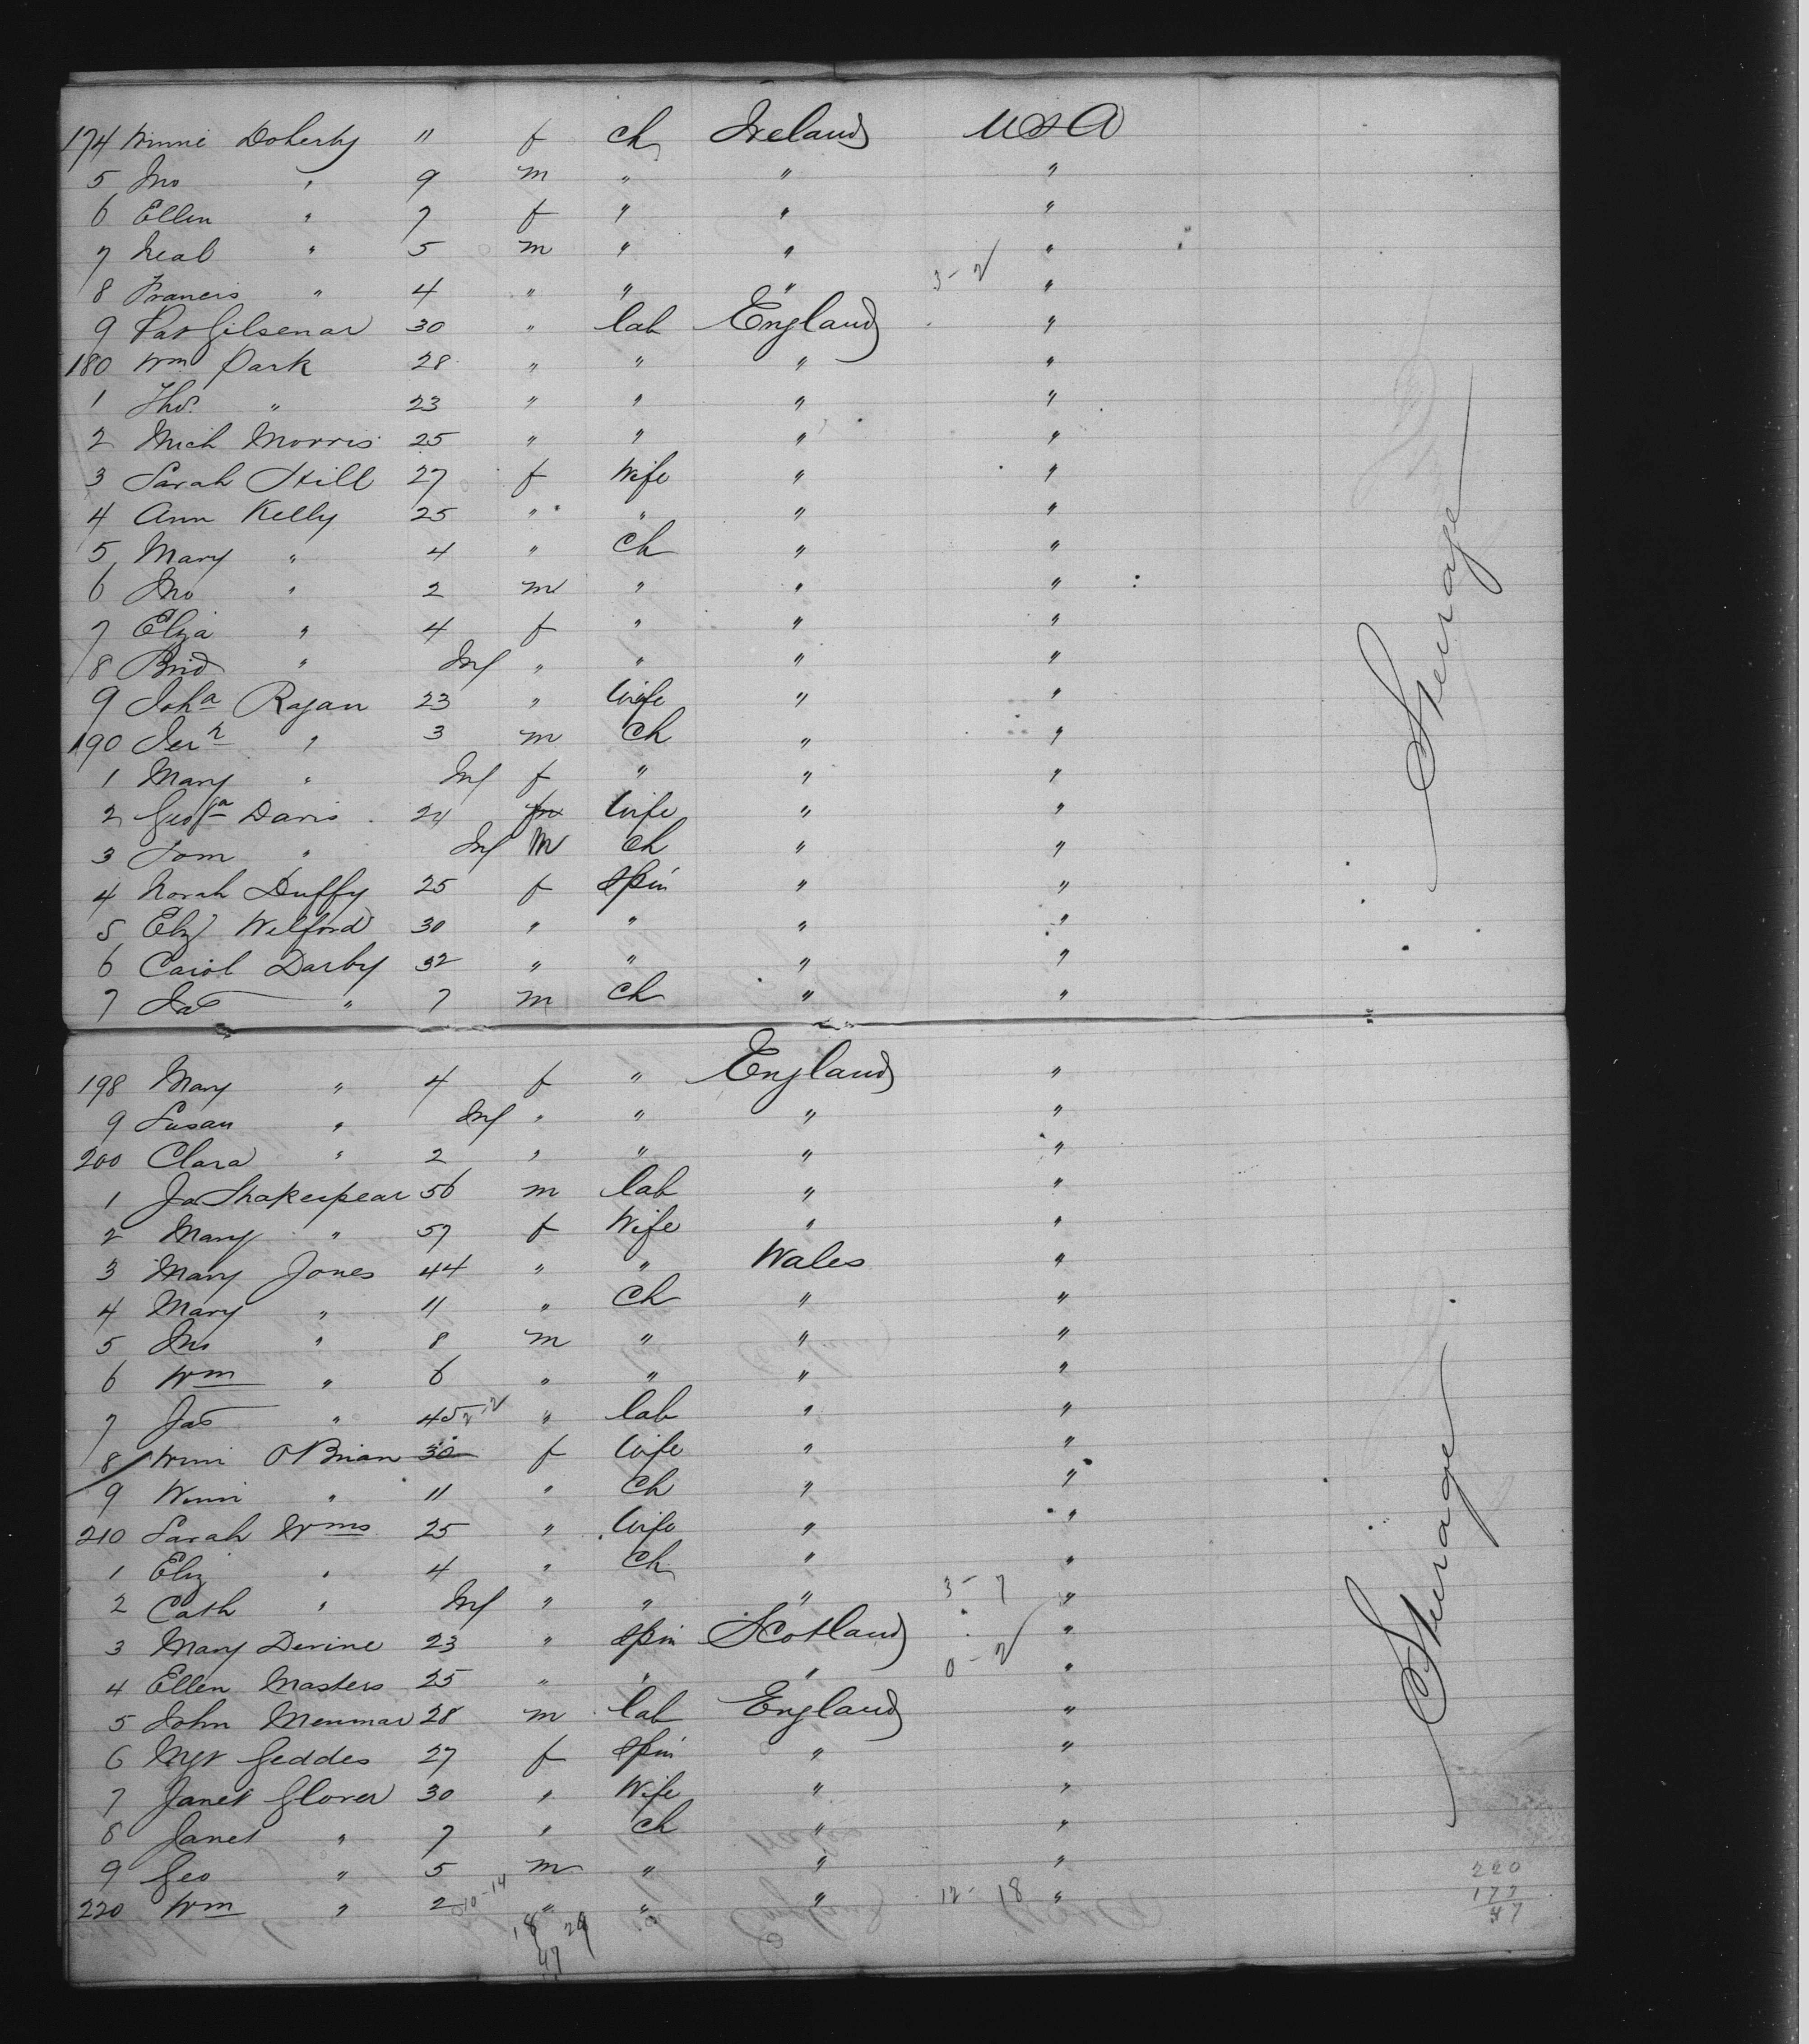 174 Winnie Doherty " f ch Ireland USA
5 Jno " 9 m " " "
6 Ellen " 7 f " " "
7 Neal " 5 m " " "
8 Francis " 4 " " " 3-2 "
9 Pat Gilsenar 30 " lab England "
180 Wm Park 28 " " " "
1 Thos. " 23 " " " "
2 Mich Morris 25 " " " "
3 Sarah Hill 27 f Wife " "
4 Ann Kelly 25 " " " "
5 Mary " 4 " Ch " "
6 Jno " 2 m " " "
7 Eliza " 4 f " " "
8 Brid " Inf " " " "
9 Joha Ragan 23 " Wife " "
190 Jer " 3 m Ch " "
1 Mary " Inf f " " "
2 Geoga Davis 24 Wife " "
3 Tom " Inf M Ch " "
4 Norah Duffy 25 f Spin " "
5 Eliz Welford 30 " " " "
6 Carol Darby 32 " " " "
7 Jas " 7 m Ch " "
198 Mary " 4 f " England "
9 Susan " Inf " " " "
200 Clara " 2 " " " "
1 Ja Shakespear 56 m lab " "
2 Mary " 57 f Wife " "
3 Mary Jones 44 " " Wales "
4 Mary " 11 " Ch " "
5 Jno " 8 m " " "
6 Wm " 6 " " " "
7 Jas " 45 " lab " "
8 Winni O'Brian 30 f Wife " "
9 Winni " 11 " Ch " "
210 Sarah Wms 25 " Wife " "
1 Eliz " 4 " Ch " "
2 Cath " Inf " " " 3-7 "
3 Mary Devine 23 " Spin Scotland "
4 Ellen Masters 25 " " " 0-2 "
5 John Menmar 28 m lab England "
6 Mgt Geddes 27 f Spin " "
7 Janet Glover 30 " Wife " "
8 Janet " 7 " Ch " "
9 Geo " 5 m " " "
220 Wm " 2 10-14 " " " 12-18 "
18 29
47
Steerage
Steerage
220
177
47